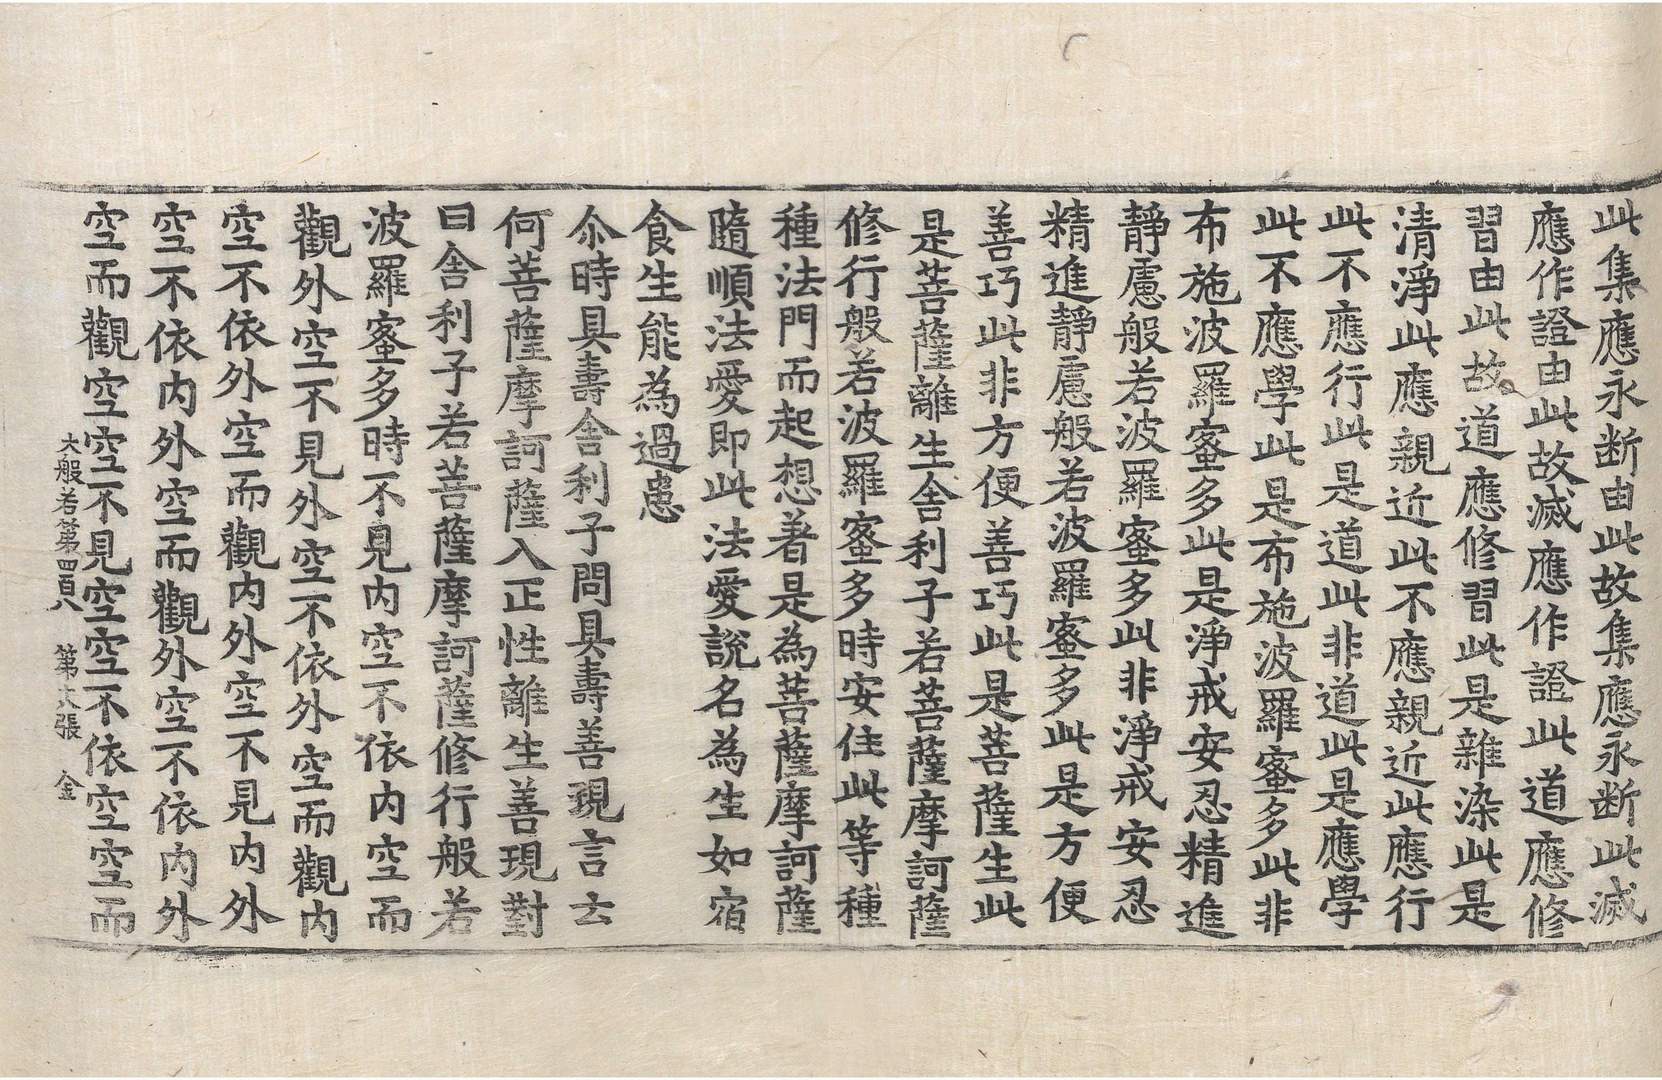 此集應永断由此故集應永断此滅
應作證由此故滅應作證此道應修
習由此故道應修習此是雜染此是
清淨此應親近此不應親近此應行
此不應行此是道此非道此是應學
此不應學此是布施波羅蜜多此非
布施波羅蜜多此是淨戒安忍精進
靜慮般若波羅蜜多此非淨戒安忍
精進靜慮般若波羅蜜多此是方便
善巧此非方便善巧此是菩薩生此
是菩薩離生舍利子若菩薩摩訶薩
修行般若波羅蜜多時安住此等種
種法門而起想著是為菩薩摩訶薩
隨順法愛即此法愛說名為生如宿
食生能為過患
尒時具壽舍利子問具壽善現言云
何菩薩摩訶薩入正性離生善現對
曰舍利子若菩薩摩訶薩修行般若
波羅蜜多時不見内空不依内空而
觀外空不見外空不依外空而觀内
空不依外空而觀内外空不見内外
空不依内外空而觀外空不依内外
空而觀空空不見空空不依空空而
大般若第四百八 第六張 金